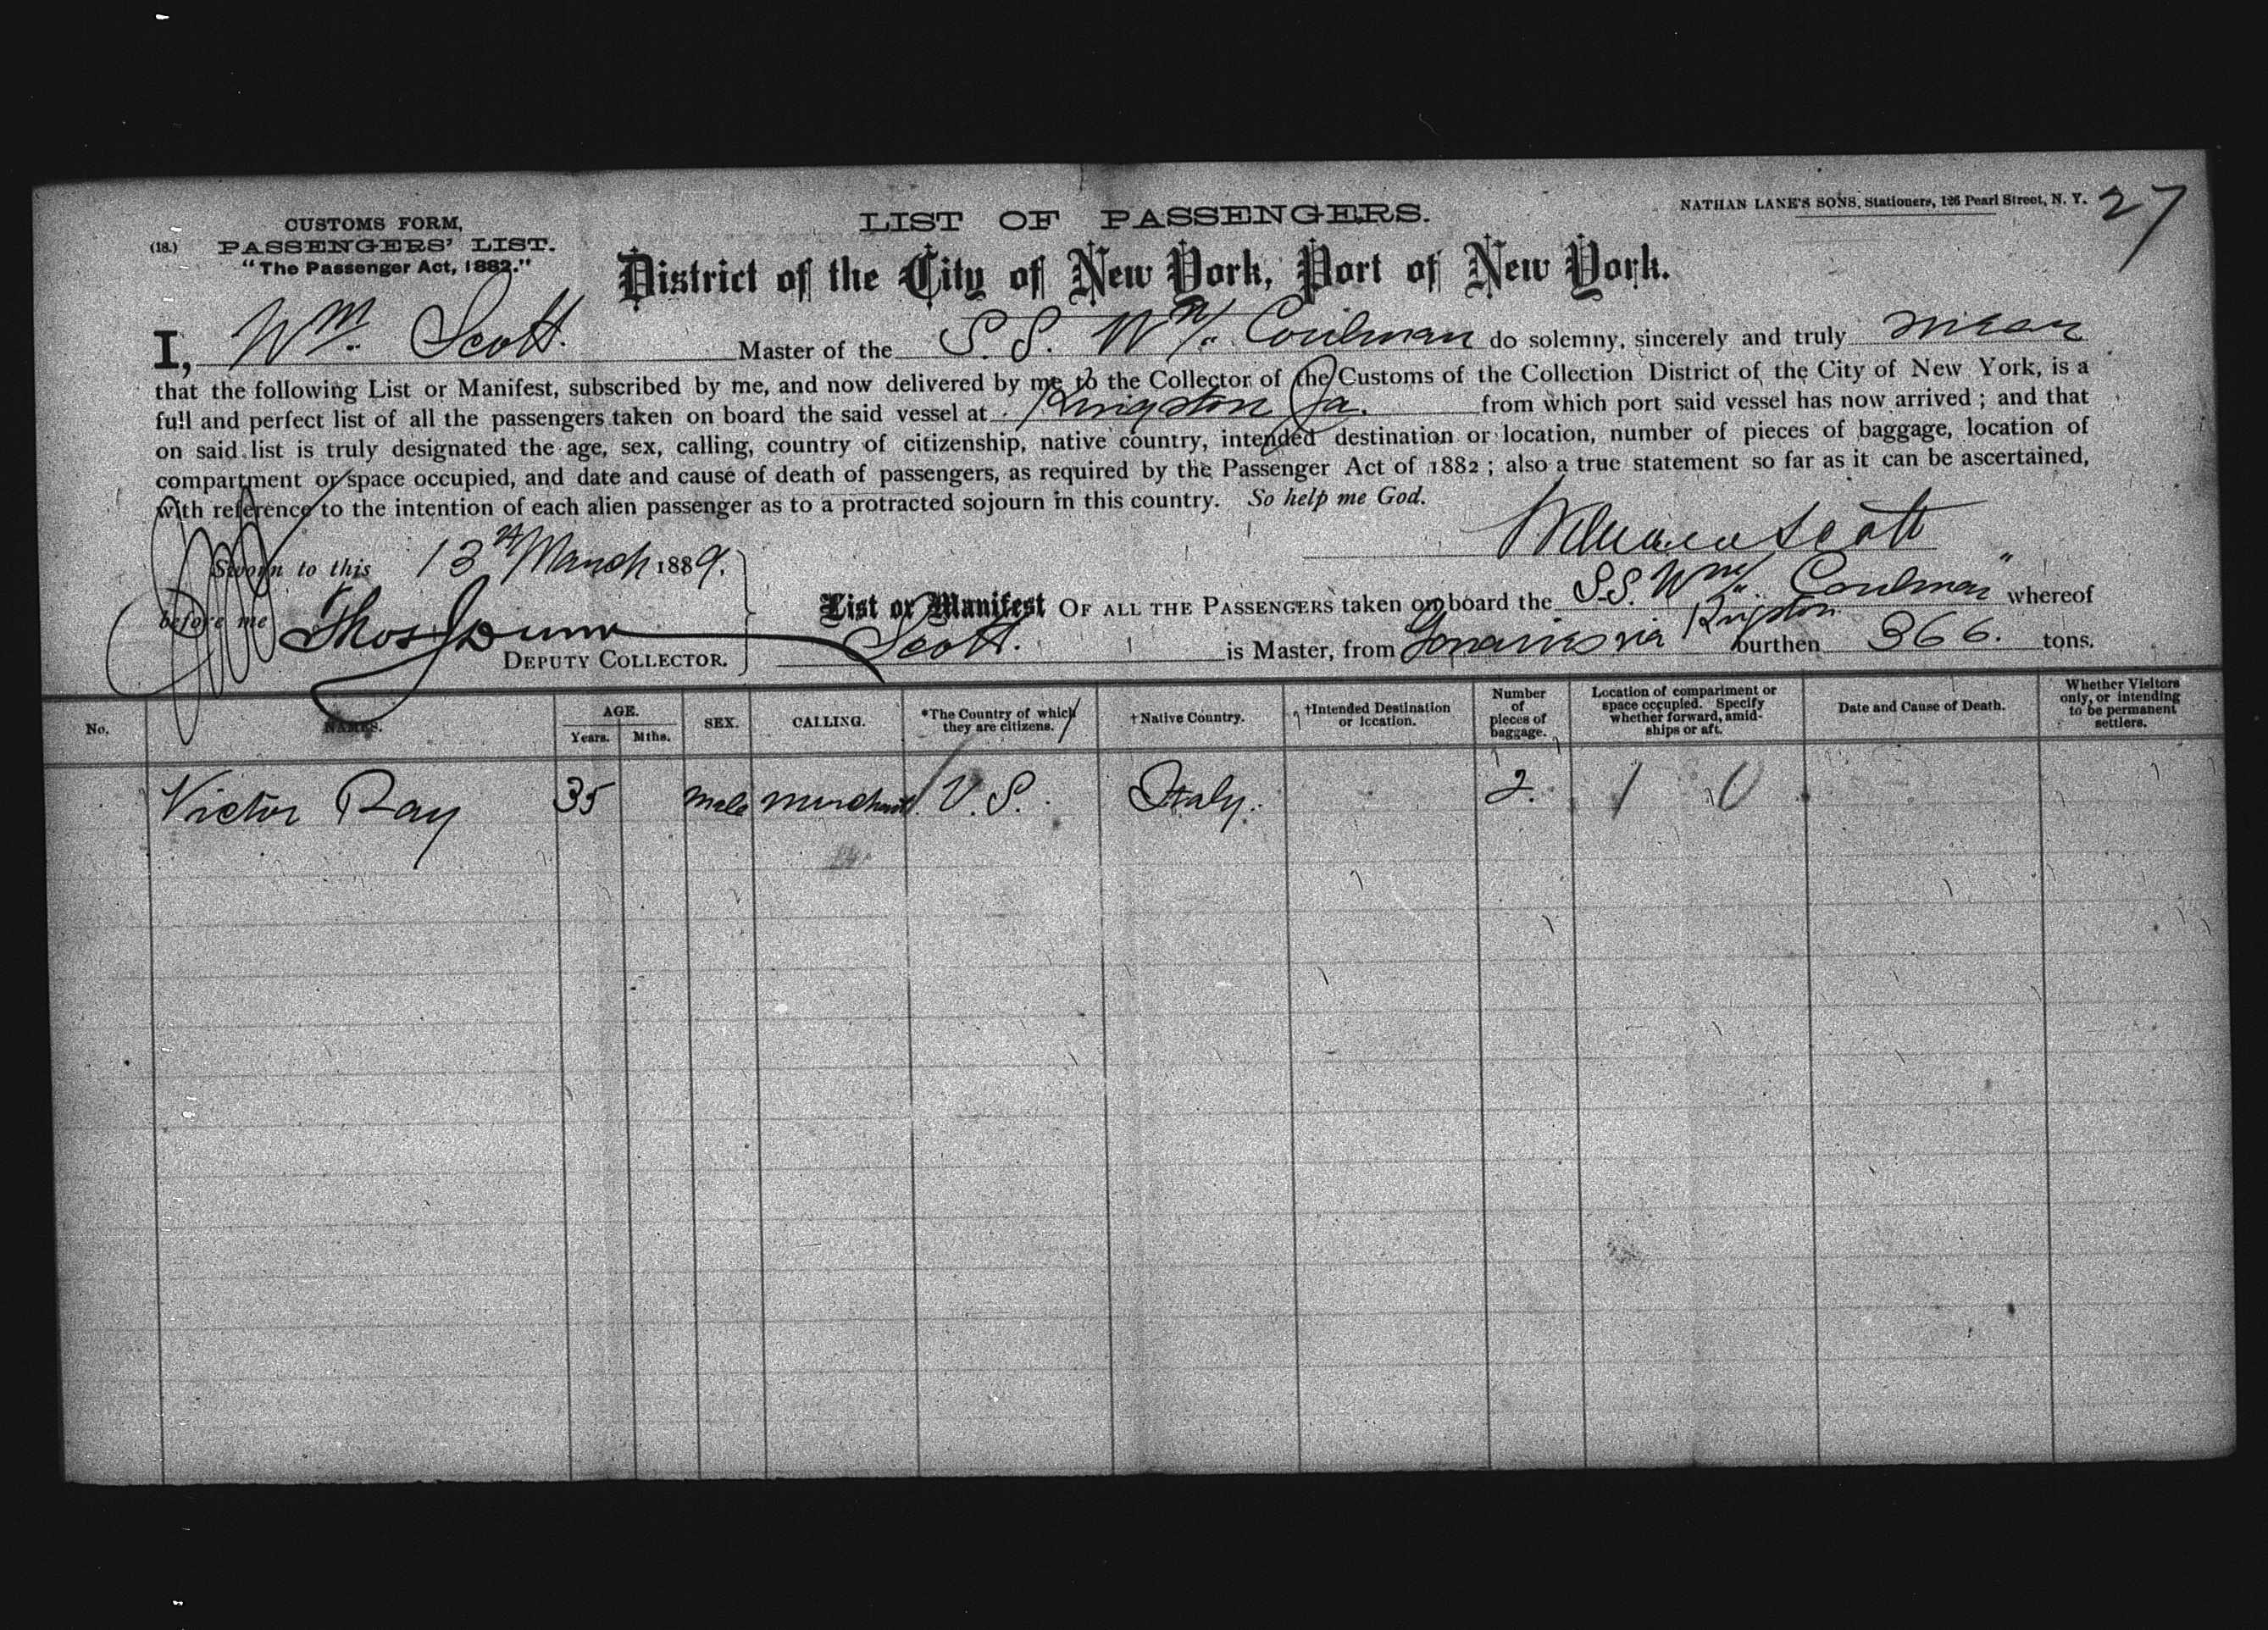 NATHAN LANE'S SONS, Stationers, 126 Pearl Street, N. Y. 27
CUSTOMS FORM,
(18.) PASSENGERS' LIST.
"The Passenger Act, 1882."
LIST OF PASSENGERS.
District of the City of New York, Port of New York.
I, Wm. Scott Master of the S. S. Wm. Coulman do solemny, sincerely and truly swear
that the following List or Manifest, subscribed by me, and now delivered by me to the Collector of the Customs of the Collection District of the City of New York, is a
full and perfect list of all the passengers taken on board the said vessel at Kingston Ja. from which port said vessel has now arrived; and that
on said list is truly designated the age, sex, calling, country of citizenship, native country, intended destination or location, number of pieces of baggage, location of
compartment or space occupied, and date and cause of death of passengers, as required by the Passenger Act of 1882; also a true statement so far as it can be ascertained,
with reference to the intention of each alien passenger as to a protracted sojourn in this country. So help me God.
William Scott
Sworn to this 13th March 1889.
before me Thos Dunn
DEPUTY COLLECTOR.
List or Manifest OF ALL THE PASSENGERS taken on board the S.S. Wm. Coulman" whereof
Scott. is Master, from Gonaives via Kingston burthen 366. tons.
No. NAMES. AGE. Years. Mths. SEX. CALLING. *The Country of which they are citizens. †Native Country. †Intended Destination or location. Number of pieces of baggage. Location of compartment or space occupied. Specify whether forward, amidships or aft. Date and Cause of Death. Whether Visitors only, or intending to be permanent settlers.
Victor Ray 35 male merchant U. S. Italy. 2. 1 0